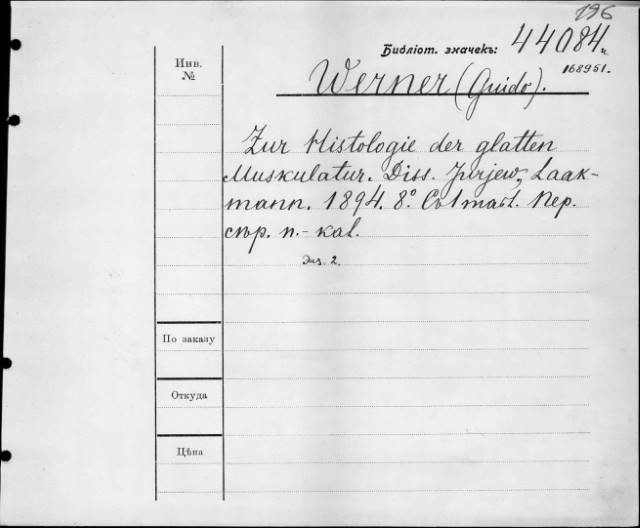 196
Библіот. значекъ: 44084
168951.
Инв.
№
Werner (Guido).
Zur Histologie der glatten
Muskulatur. Diss. Jurjew, Laak-
mann. 1894. 8° Col Пер.
сѣр. п.- kal.
Экз. 2.
По заказу
Откуда
Цѣна